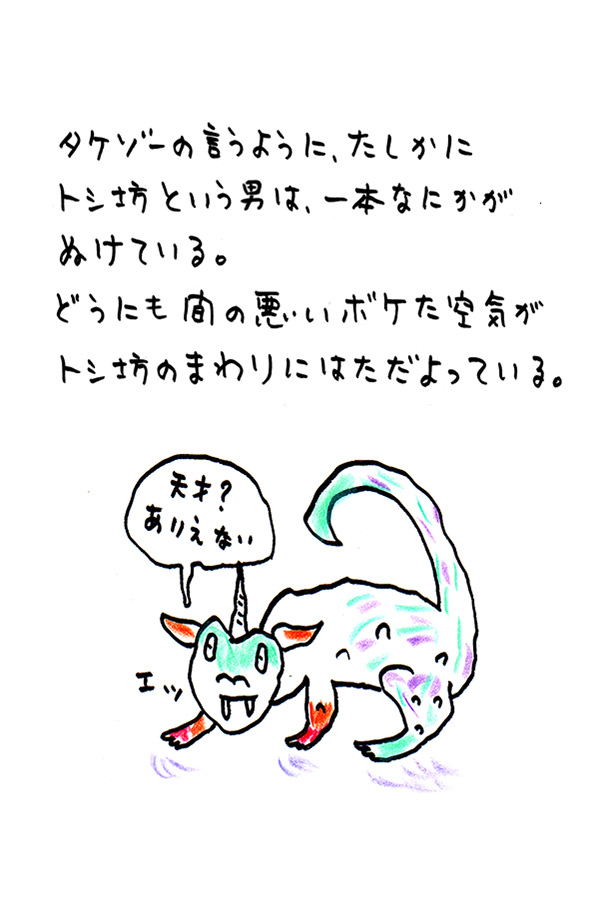 タケゾーの言うように、たしかに
トシ坊という男は、一本なにかが
ぬけている。
どうにも間の悪いボケた空気が
トシ坊のまわりにはただよっている。
天才?
ありえない
エッ